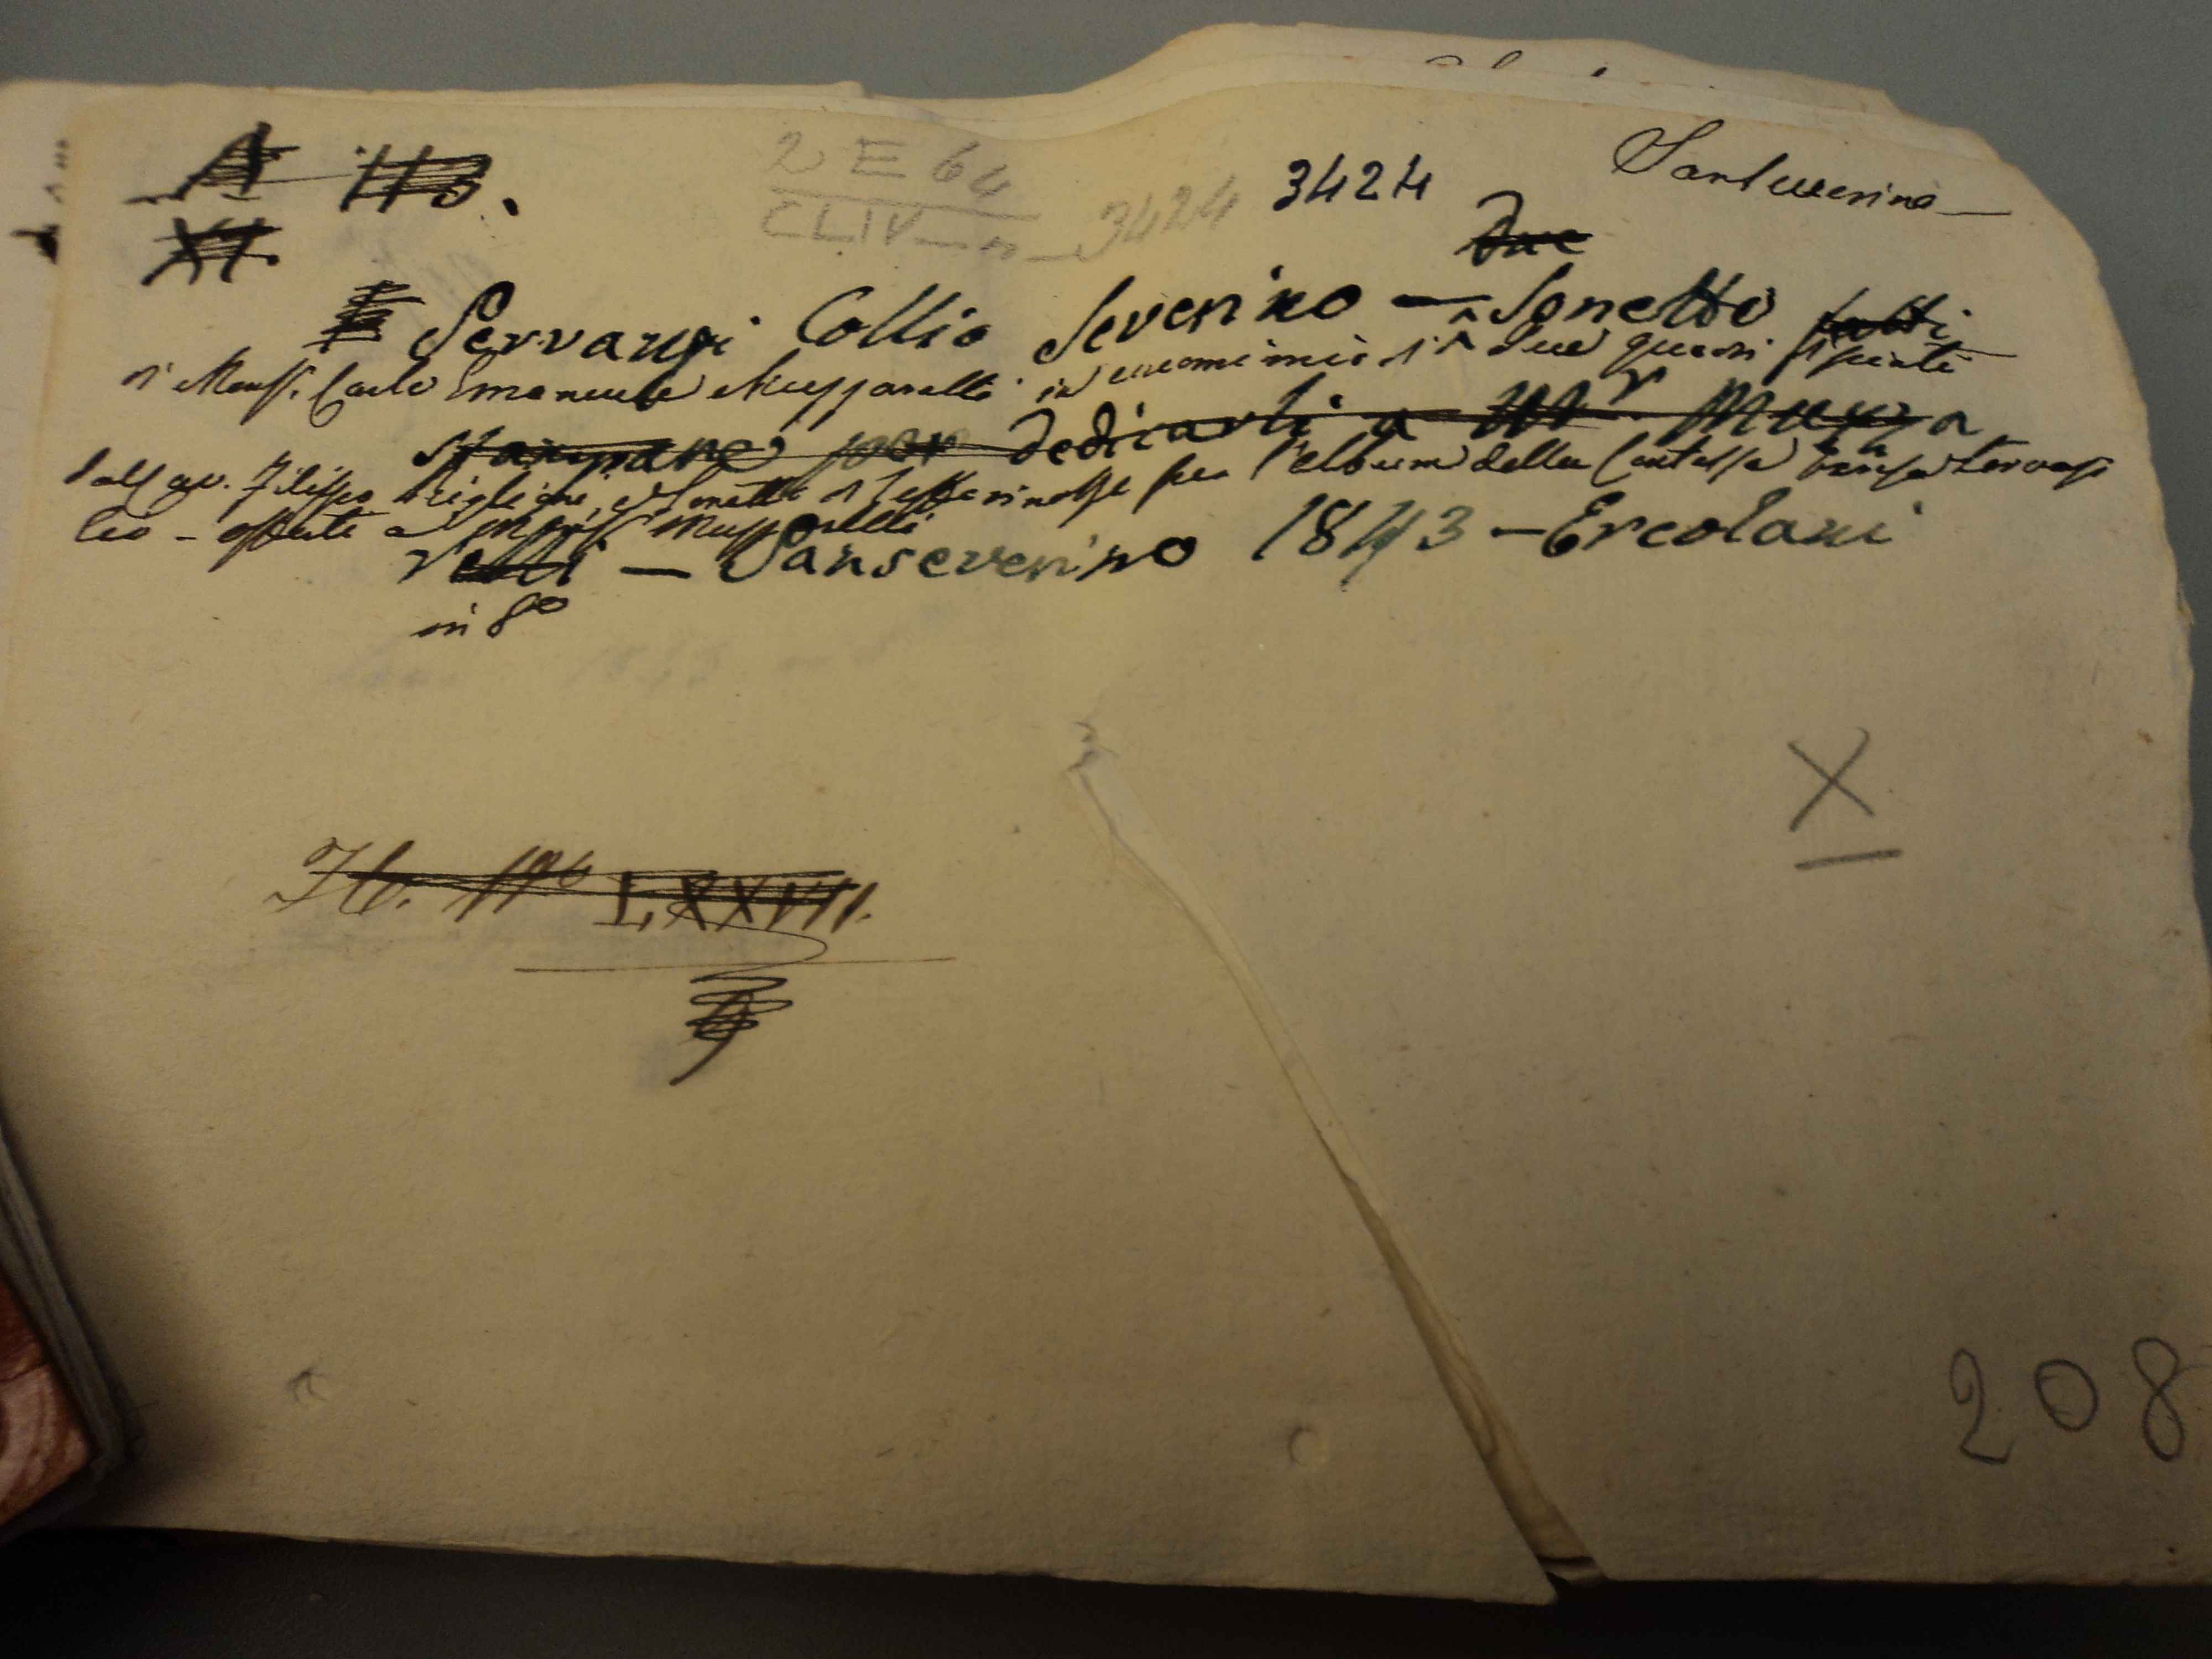 A 113.
2 E 64
3424
Sanseverino —
XI.
CLIV
3424
Due
Servanzi Collio Severino — Sonetto fatti
di Mons. Carlo Emanuele Muzzarelli in encomio di due quadri dipinti
stampare per dedicarli a Mr Muzza
dall Filippo Bigioli, e Sonetto di per l'album della Contessa Servanzi
lio — offerti a Mons. Muzzarelli
relli — Sanseverino 1843 — Ercolani
in 8°
X
LXXVIII.
208